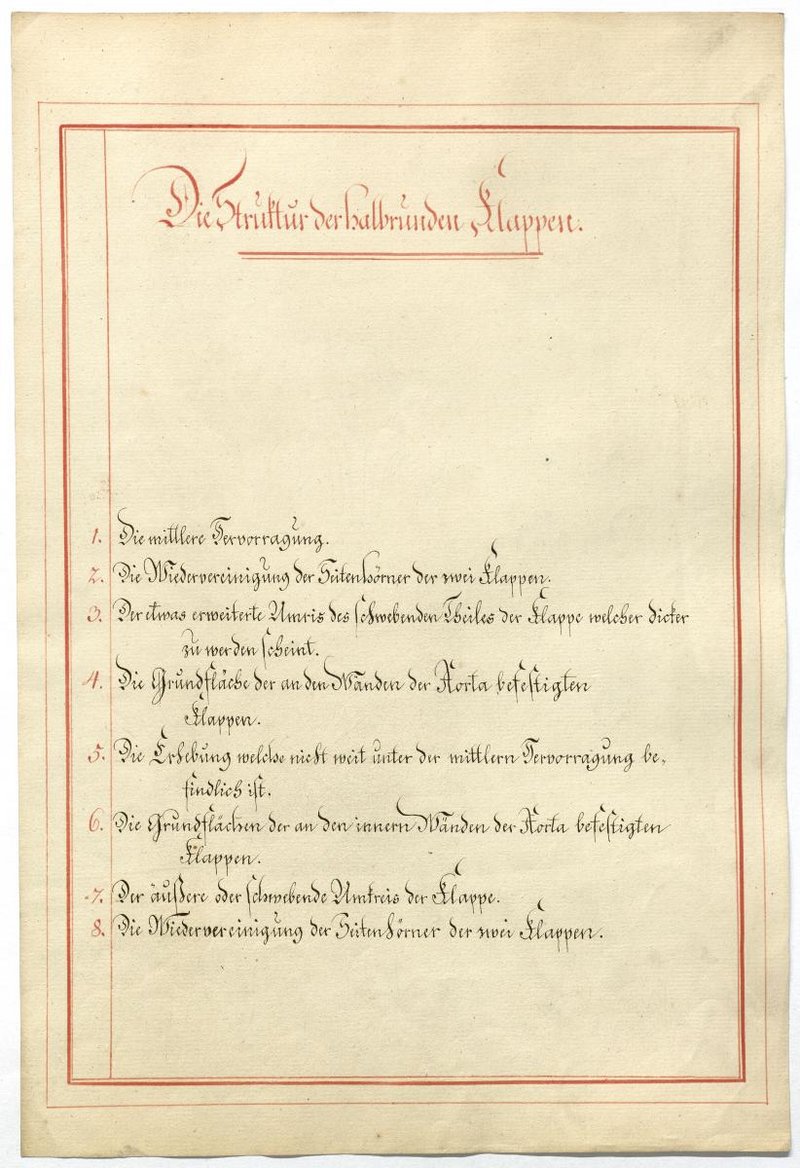 Die Struktur der halbrunden Klappen.
1. Die mittlere Hervorragung.
2. Die Wiedervereinigung der Seitenhörner der zwei Klappen.
3. Der etwas erweiterte Umris des schwebenden Theiles der Klappe welcher dicker
zu werden scheint.
4. Die Grundfläche der an den Wänden der Aorta befestigten
Klappen.
5. Die Erhebung welche nicht weit unter der mittlern Hervorragung be-
findlich ist.
6. Die Grundflächen der an den innern Wänden der Aorta befestigten
Klappen.
7. Der äußere oder schwebende Umkreis der Klappe.
8. Die Wiedervereinigung der Seitenhörner der zwei Klappen.